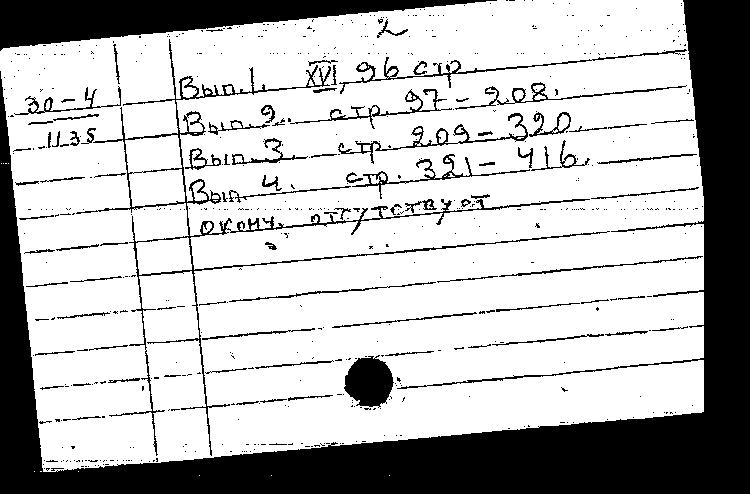 2
30-4
1135
Вып. 1. XVI, 96 стр.
Вып. 2. стр. 97-208.
Вып. 3. стр. 209-320.
Вып. 4. стр. 321-416.
оконч. отсутствует